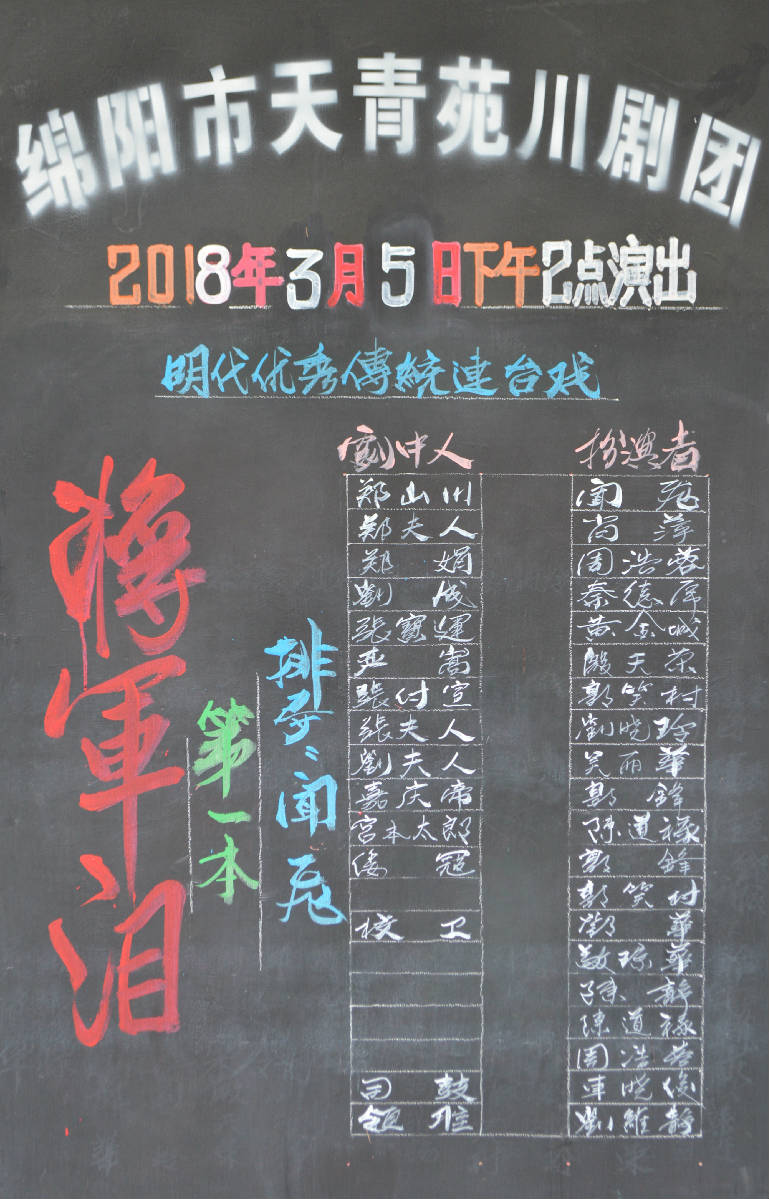 绵阳市天青苑川剧团
2018年3月5日下午2点演出
明代优秀傳統連台戏
將軍泪
第一本
排孕:闻苑
劇中人 扮演者
郑山川 闻苑
郑夫人 尚萍
郑娟 周浩蓉
劉成 秦德席
張寶運 黄金城
严嵩 殷天荣
張付宣 郭笑村
張夫人 劉晓玲
劉夫人 吴丽華
嘉庆帝 郭鋒
宫本太郎 陳道禄
倭冠 郭鋒
郭笑付
校卫 鄧華
陳静
陳道禄
周浩蓉
司鼓
領腔 劉維静